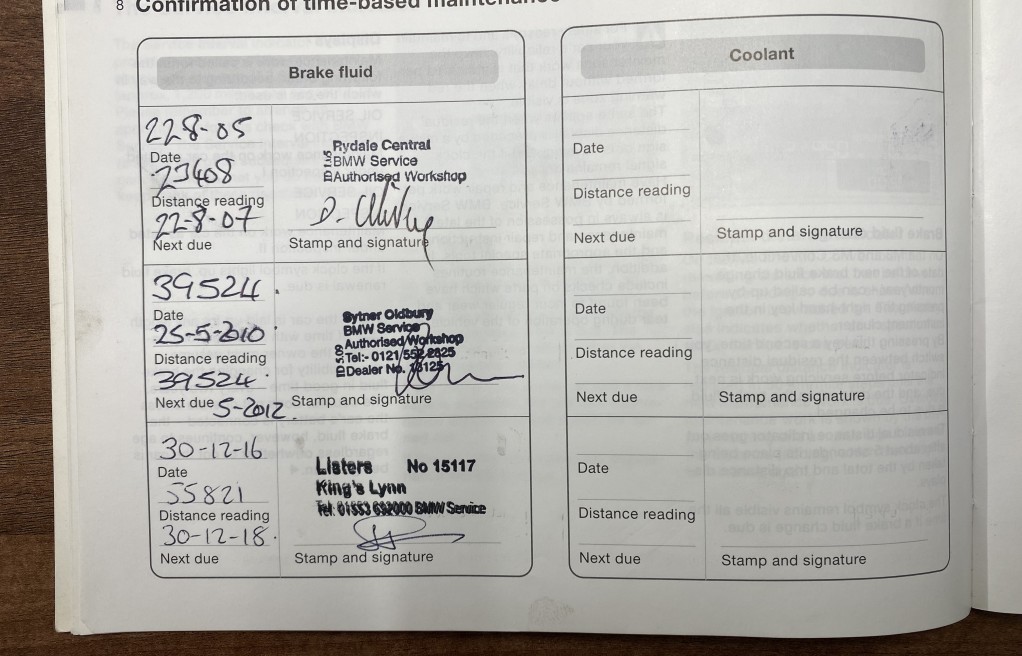 8 Confirmation of time-based maintenance
Brake fluid
22-8-05
Date
23408
Distance reading
22-8-07
Next due
Rydale Central
BMW Service
Authorised Workshop
Stamp and signature
39524.
Date
25-5-2010
Distance reading
39524.
Next due 5-2012.
Sytner Oldbury
BMW Service
Authorised Workshop
Tel:- 0121 552 2825
Dealer No. 13125
Stamp and signature
30-12-16
Date
55821
Distance reading
30-12-18.
Next due
Listers No 15117
King's Lynn
Tel: 01553 692000 BMW Service
Stamp and signature
Coolant
Date
Distance reading
Next due
Stamp and signature
Date
Distance reading
Next due
Stamp and signature
Date
Distance reading
Next due
Stamp and signature